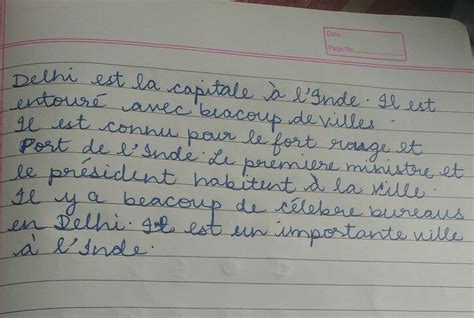 Date :
Page No.
Delhi est la capitale à l'Inde. Il est
entouré avec beacoup de villes.
Il est connu pour le fort rouge et
Port de l'Inde. Le premiere ministre et
le président habitent à la ville.
Il y a beacoup de célebre bureaus
en Delhi. Il est un importante ville
à l'Inde.